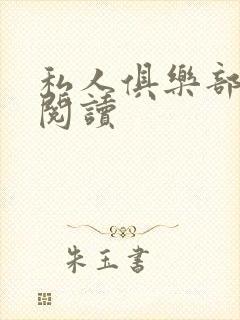 私人俱樂部
閱讀
朱玉書